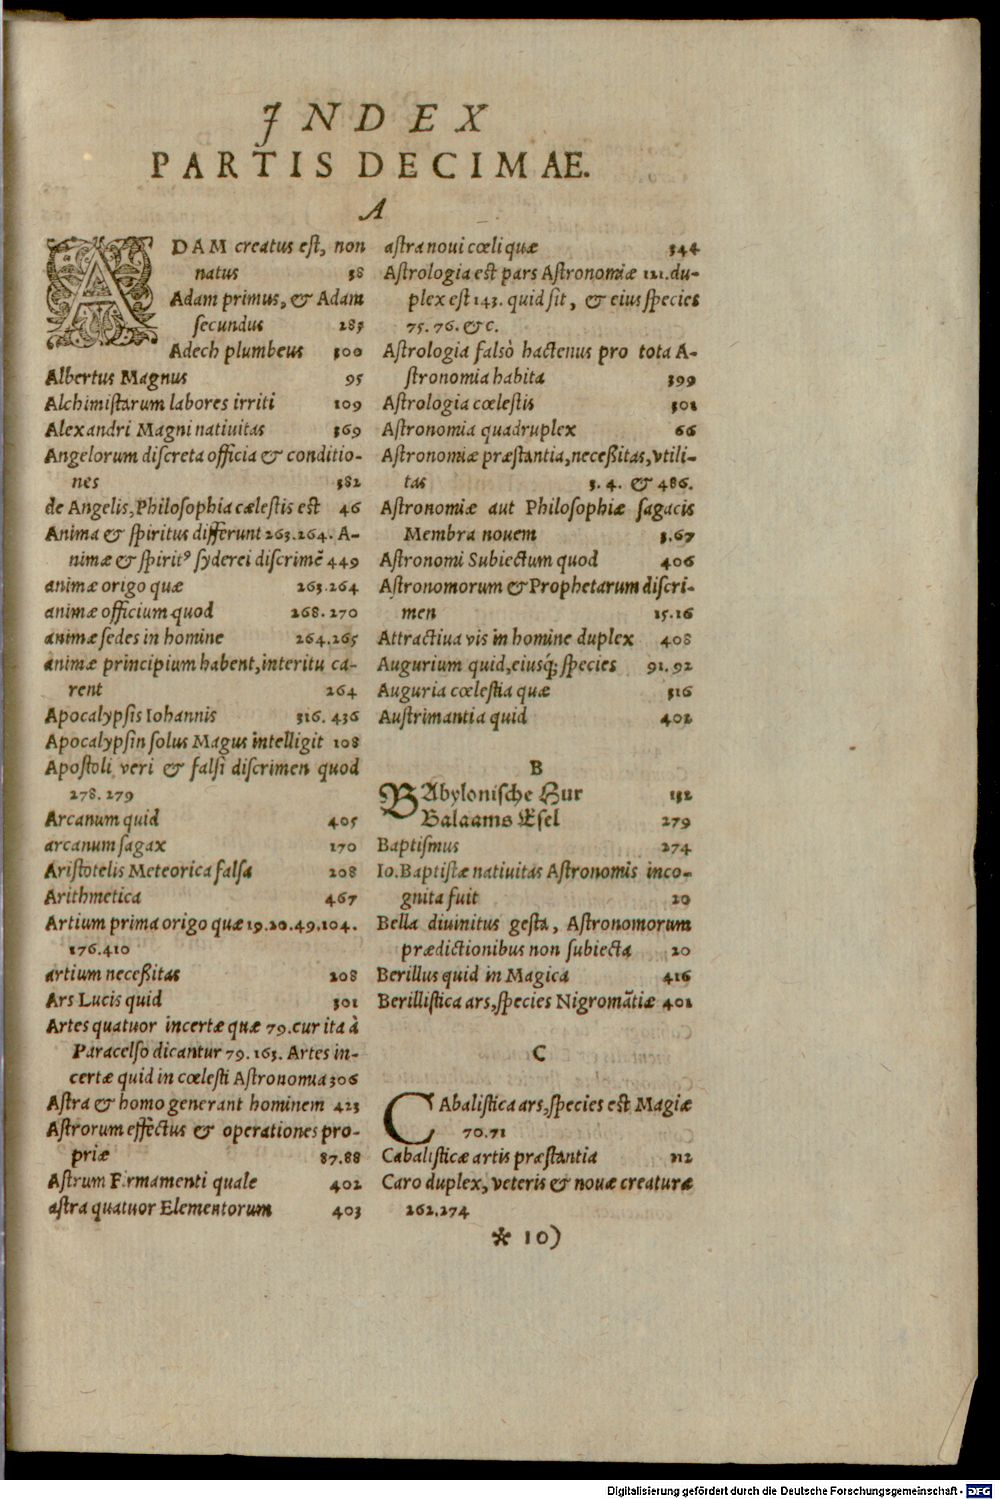 INDEX
PARTIS DECIMAE.
A
ADAM creatus est, non
natus 38
Adam primus, & Adam
secundus 285
Adech plumbeus 300
Albertus Magnus 95
Alchimistarum labores irriti 109
Alexandri Magni nativitas 369
Angelorum discreta officia & conditio-
nes 382
de Angelis, Philosophia cælestis est 46
Anima & spiritus differunt 263.264. A-
nimæ & spiritꝰ syderei discrimẽ 449
animæ origo quæ 263.264
animæ officium quod 268.270
animæ sedes in homine 264.265
animæ principium habent, interitu ca-
rent 264
Apocalypsis Iohannis 316. 436
Apocalypsin solus Magus intelligit 108
Apostoli veri & falsi discrimen quod
278. 279
Arcanum quid 405
arcanum sagax 170
Aristotelis Meteorica falsa 208
Arithmetica 467
Artium prima origo quæ 19.20.49.104.
176.410
artium neceßitas 208
Ars Lucis quid 301
Artes quatuor incertæ quæ 79. cur ita à
Paracelso dicantur 79. 163. Artes in-
certæ quid in cœlesti Astronomia 306
Astra & homo generant hominem 423
Astrorum effectus & operationes pro-
priæ 87.88
Astrum Firmamenti quale 402
astra quatuor Elementorum 403
astra noui cœli quæ 344
Astrologia est pars Astronomiæ 121. du-
plex est 143. quid sit, & eius species
75. 76. &c.
Astrologia falsò hactenus pro tota A-
stronomia habita 399
Astrologia cœlestis 301
Astronomia quadruplex 66
Astronomiæ præstantia, neceßitas, vtili-
tas 3. 4. & 486.
Astronomiæ aut Philosophiæ sagacis
Membra nouem 3.67
Astronomi Subiectum quod 406
Astronomorum & Prophetarum discri-
men 15.16
Attractiua vis in homine duplex 408
Augurium quid, eiusq; species 91. 92
Auguria cœlestia quæ 316
Austrimantia quid 402
B
BAbylonische Hur 132
Balaams Esel 279
Baptismus 274
Io. Baptistæ natiuitas Astronomis inco-
gnita fuit 20
Bella diuinitus gesta, Astronomorum
prædictionibus non subiecta 20
Berillus quid in Magica 416
Berillistica ars, species Nigromãtiæ 401
C
CAbalistica ars, species est Magiæ
70.71
Cabalisticæ artis præstantia 112
Caro duplex, veteris & nouæ creaturæ
262.274
* 10)
Digitalisierung gefördert durch die Deutsche Forschungsgemeinschaft - DFG